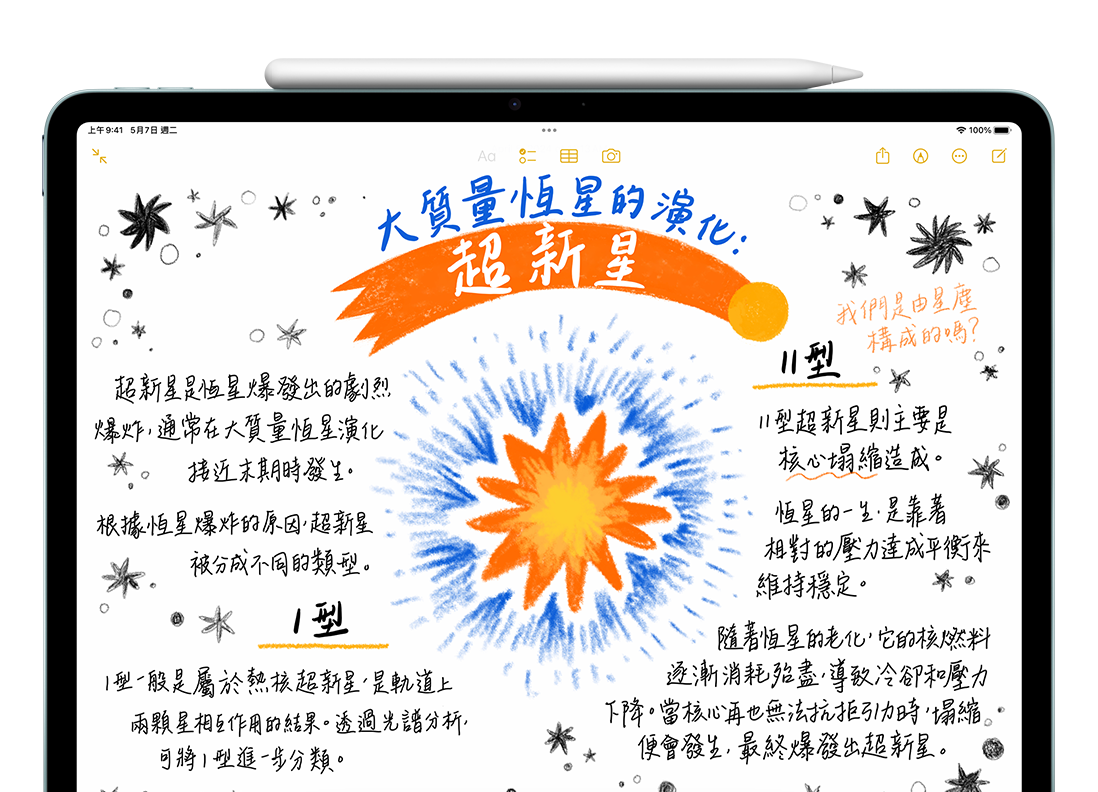 上午9:41 5月7日 週二
100%
Aa
大質量恆星的演化：
超新星
我們是由星塵
構成的嗎？
超新星是恆星爆發出的劇烈
爆炸，通常在大質量恆星演化
接近末期時發生。
根據恆星爆炸的原因，超新星
被分成不同的類型。
I型
I型一般是屬於熱核超新星，是軌道上
兩顆星相互作用的結果。透過光譜分析，
可將I型進一步分類。
II型
II型超新星則主要是
核心塌縮造成。
恆星的一生，是靠著
相對的壓力達成平衡來
維持穩定。
隨著恆星的老化，它的核燃料
逐漸消耗殆盡，導致冷卻和壓力
下降。當核心再也無法抗拒引力時，塌縮
便會發生，最終爆發出超新星。